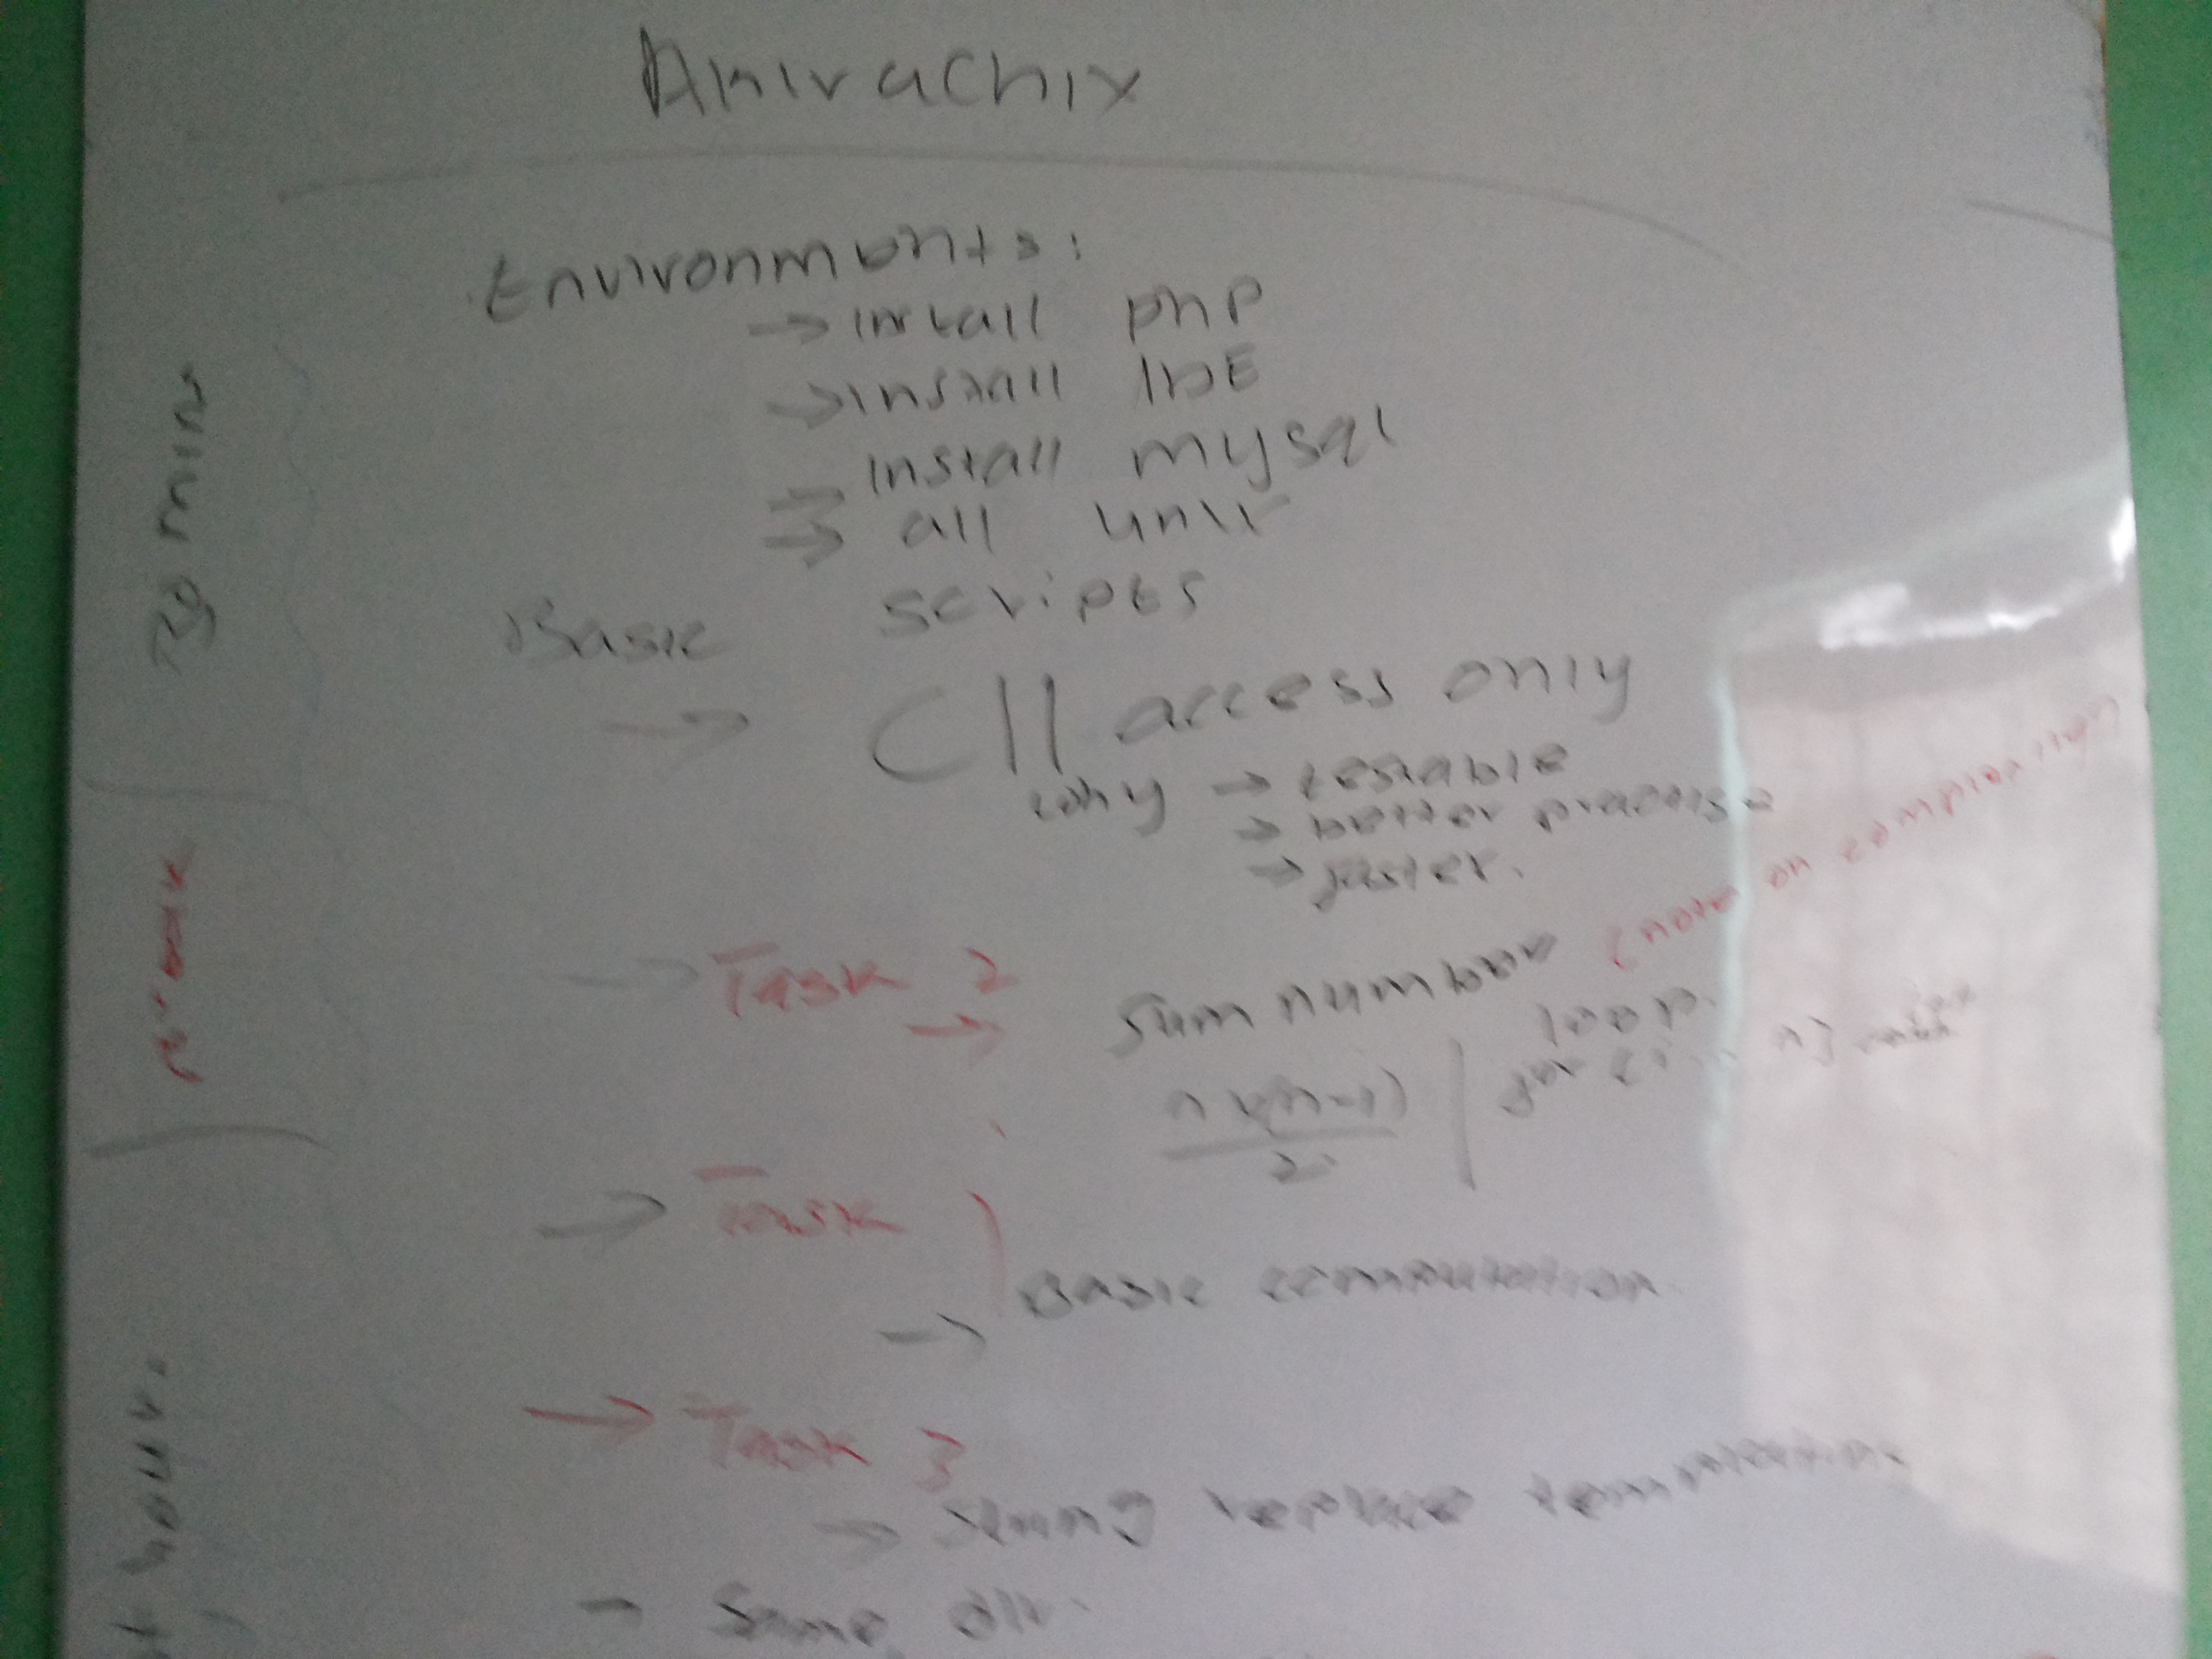 Environments:
→ install php
→ install IDE
→ install mysql
→ all
Basic scripts
→ Cli access only
why → testable
→ better practise
→ faster.
→ Task 2
→ sum number (note on complexity)
n(n-1) | loop.
2 | for
→ Task 1
→ Basic computation
→ Task 3
→ string replace
→ Same
min
break
hour.